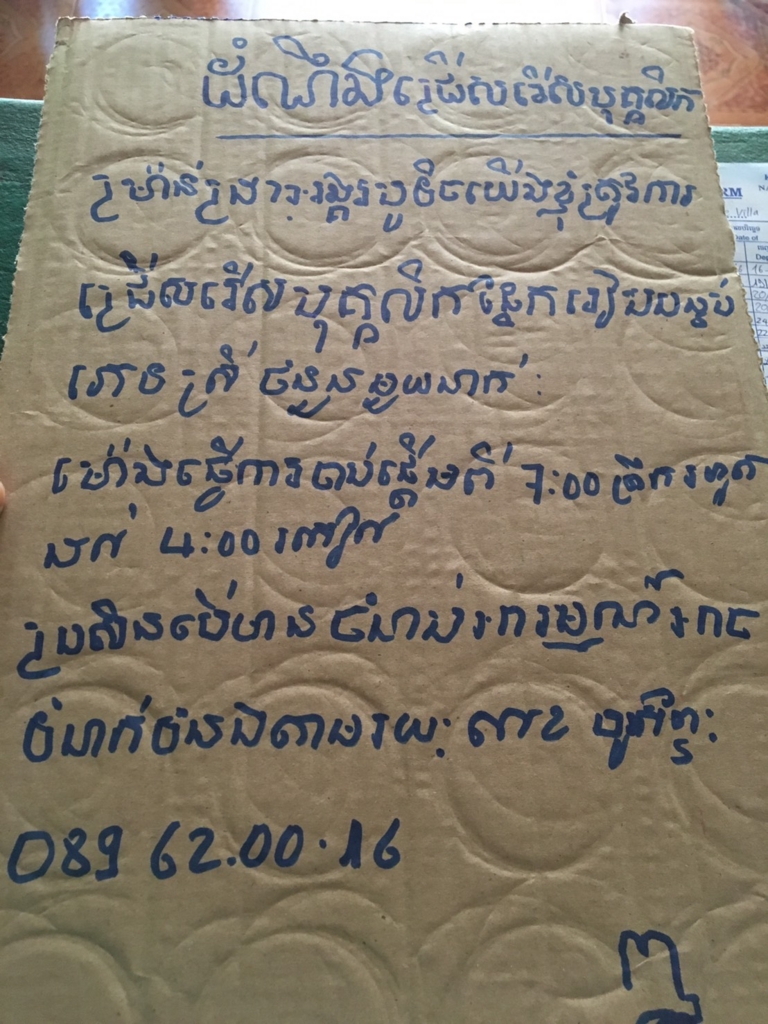 ដំណឹងជ្រើសរើសបុគ្គលិក
ប្រម៉ាន់ប្រងារៈរស្គរបូទិចយើងខ្ញុំត្រូវការ
ជ្រើសរើសបុគ្គលិកផ្នែករៀបបន្ទប់
ភេទស្រី ចំនួនមួយនាក់:
ម៉ោងធ្វើការចាប់ផ្ដើមពី 7:00 ព្រឹករហូត
ដល់ 4:00 រសៀល
ប្រសិនបើមានចំណាប់អារម្មណ៍អាច
ទំនាក់ទំនងតាមរយៈ លេខ ទូរស័ព្ទ:
089 62.00.16
RM
Villa